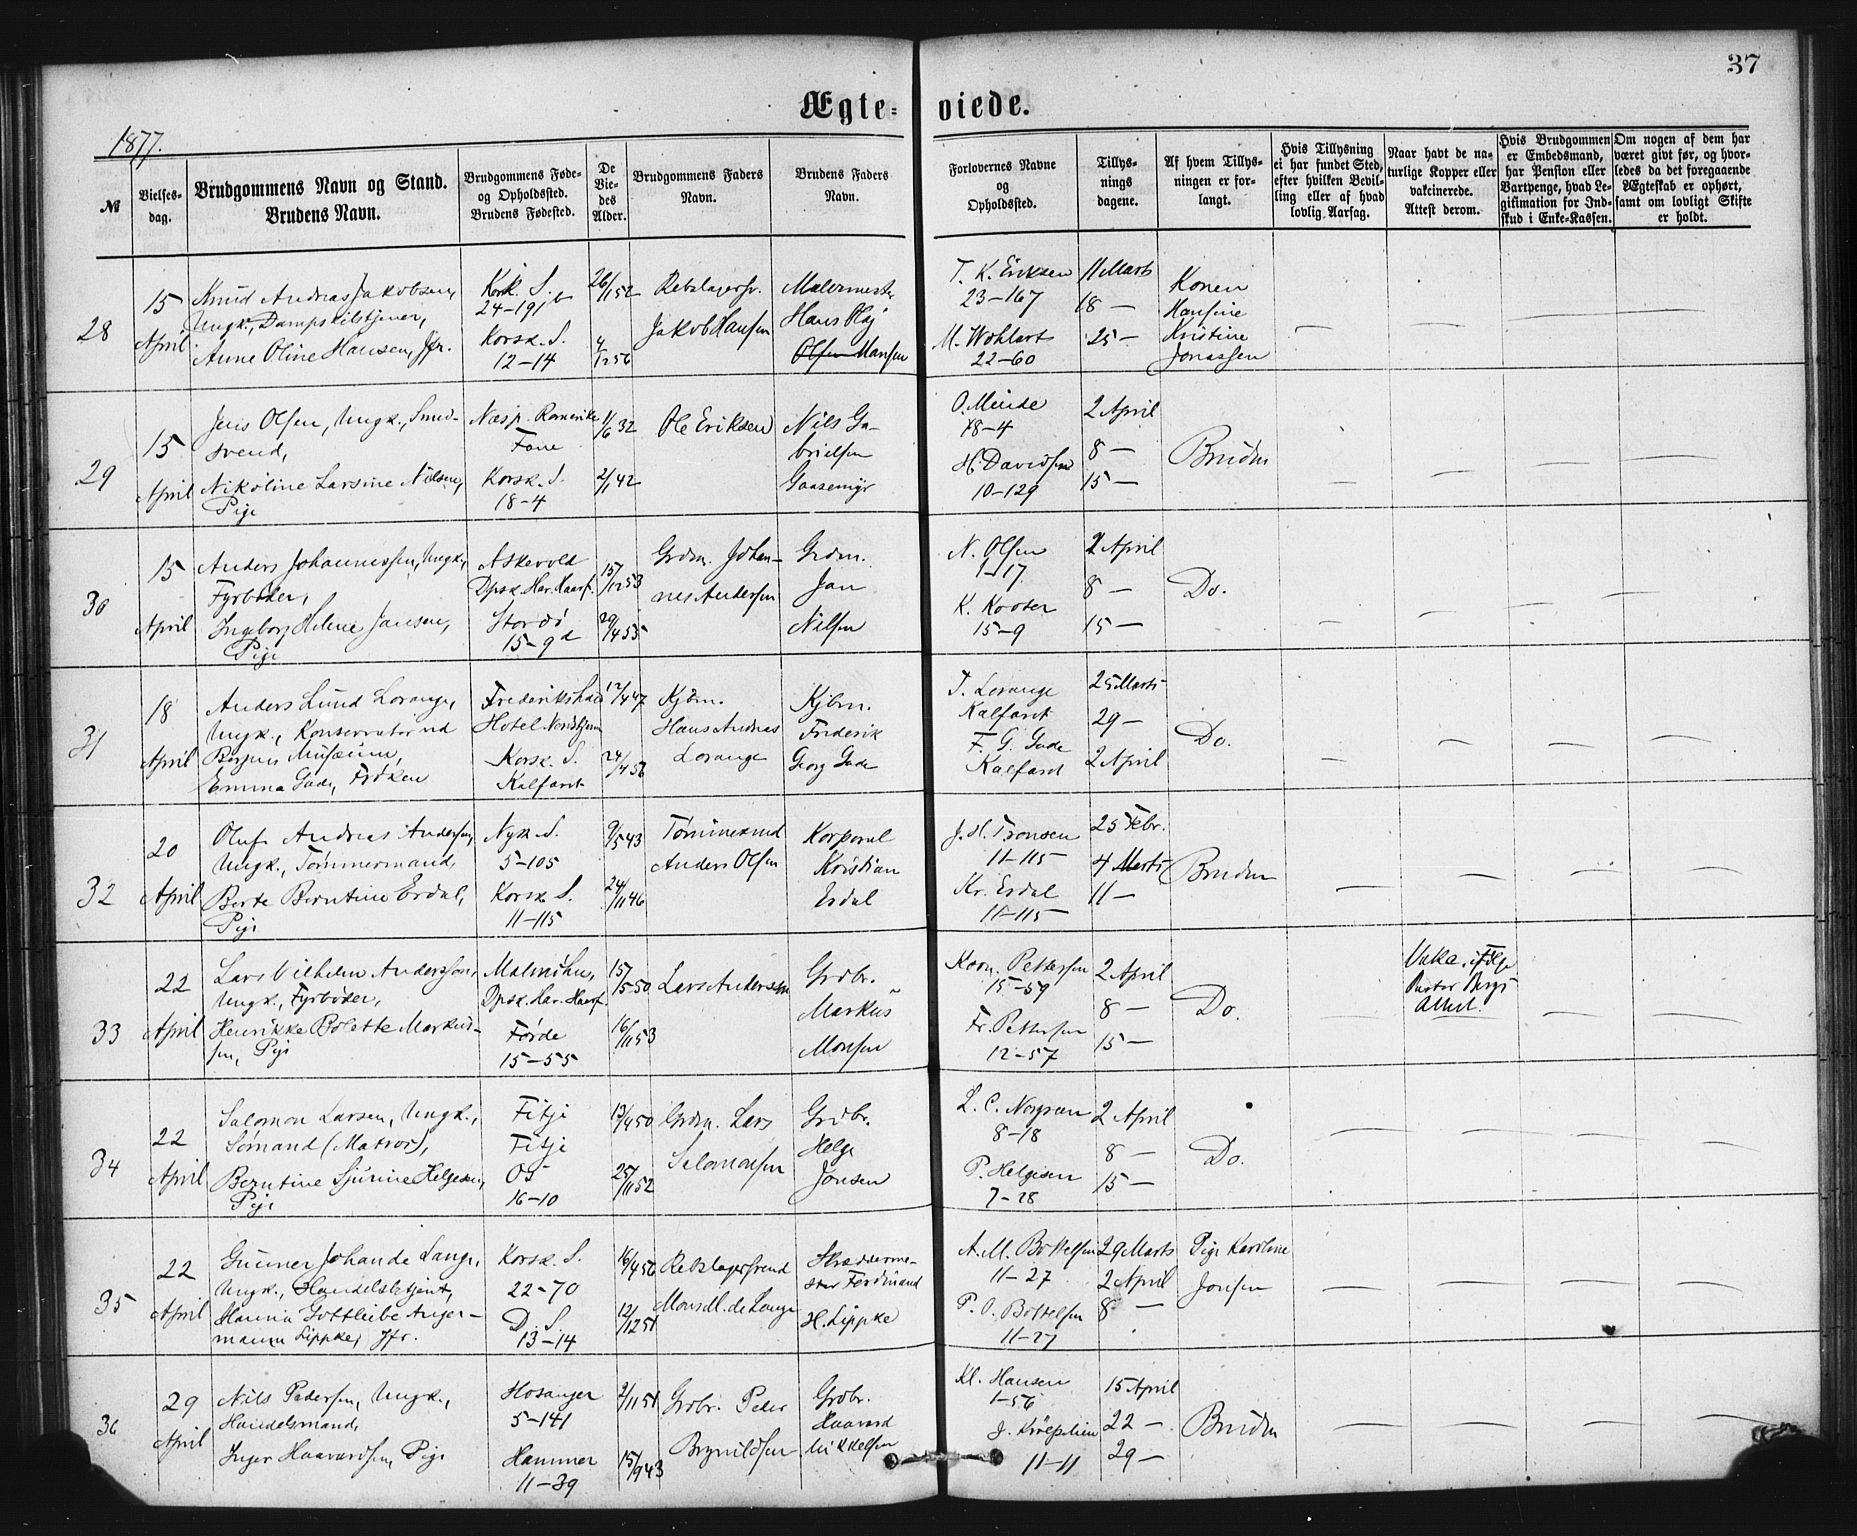 37
Ægte- viede.
1877.
№
Vielses-
dag.
Brudgommens Navn og Stand.
Brudens Navn.
Brudgommens Føde-
og Opholdssted.
Brudens Fødested.
De
Vie-
des
Alder.
Brudgommens Faders
Navn.
Brudens Faders
Navn.
Forlovernes Navne
og
Opholdssted.
Tillys-
nings
dagene.
Af hvem Tillys-
ningen er for-
langt.
Hvis Tillysning
ei har fundet Sted,
efter hvilken Bevil-
ling eller af hvad
lovlig Aarsag.
Naar havt de na-
turlige Kopper eller
vakcinerede.
Attest derom.
Hvis Brudgommen
er Embedsmand,
har Pension eller
Vartpenge, hvad Le-
gitimation for Ind-
skud i Enke-Kassen.
Om nogen af dem har
været givt før, og hvor-
ledes da det foregaaende
Ægteskab er ophørt,
samt om lovligt Skifte
er holdt.
28
15
April
Knud Andreas Jakobsen,
Ungk., Dampskibstjener,
Anne Oline Hansen, Jfr.
Korsk. S.
24-19jb
Korsk. S.
12-14
26/1 52
4/12 56
Rebslagersv.
Jakob Hansen
Malermest.
Hans Olaj
Olsen Hansen
T. K. Eriksen
23-167
M. Wohlert
22-60
11 Marts
18 —
25 —
Konen
Hansine
Kristine
Jonassen
29
15
April
Jens Olsen, Ungk., Smed-
svend,
Nikoline Larsine Nilsen,
Pige
Næsp. Romerike
Fane
Korsk. S.
18-4
1/6 32
2/1 42
Ole Eriksen
Nils Ga-
brielsen
Gaasemyr
O. Meide
18-4
H. Davidsen
10-129
2 April
8 —
15 —
Bruden
30
15
April
Anders Johannessen, Ungk.,
Fyrbøder,
Ingeborg Helene Jansen,
Pige
Askevold
Dpsk. Har. Haarf.
Stordö
15-9d
15/12 53
29/4 55
Grdm. Johan-
nes Andersen
Grdm.
Jan
Nilsen
N. Olsen
1-17
K. Kooter
15-9
2 April
8 —
15 —
Do.
31
18
April
Anders Lund Lorange,
Ungk., Konservator ved
Bergens Musæum,
Emma Gade, Frøken
Frederikshald
Hotel Nordstjern
Korsk. S.
Kalfaret
12/4 47
24/4 56
Kjbm.
Hans Andreas
Lorange
Kjbm.
Frederik
Georg Gade
T. Lorange
Kalfaret
F. G. Gade
Kalfaret
25 Marts
29 —
2 April
Do.
32
20
April
Oluf Andreas Andersen,
Ungk., Tømmermand,
Berte Berntine Erdal,
Pige
Nyk. S.
5-105
Korsk. S.
11-115
9/5 43
24/11 46
Tømmermd
Anders Olsen
Korporal
Kristian
Erdal
J. H. Tronsen
11-115
Kr. Erdal
11-115
25 Febr.
4 Marts
11 —
Bruden
33
22
April
Lars Vilhelm Andersson,
Ungk., Fyrbøder,
Henrikke Bolette Markus-
sen, Pige
Malmøhus,
Dpsk. Har. Haarf.
Førde
15-55
15/5 50
16/11 53
Lars Anderson
Grdbr.
Markus
Monsen
Korn. Pettersen
15-59
Fr. Pettersen
12-57
2 April
8 —
15 —
Do.
Vakc. iflge
Pastor Bergs
Attest.
34
22
April
Salomon Larsen, Ungk.,
Sømand (Matros),
Berntine Sjurine Helgesen,
Pige
Fitje
Fitje
Os
16-10
13/4 50
25/11 52
Grdm. Lars
Salomonsen
Grdbr.
Helge
Jonsen
L. C. Norgreen
8-18
P. Helgesen
7-28
2 April
8 —
15 —
Do.
35
22
April
Gunner Johan de Lange,
Ungk., Handelsbetjent,
Hanna Gottleibe Anger-
mann Lippke, Jfr.
Korsk. S.
22-70
D. S.
13-14
16/4 56
12/12 51
Rebslagersvend
Mons M. de Lange
Skrædderme-
ster Ferdinand
H. Lippke
A. M. Bottelsen
11-27
P. O. Bottelsen
11-27
29 Marts
2 April
8 —
Pige Karoline
Jonsen
36
29
April
Nils Pedersen, Ungk.,
Handelsmand,
Inger Haavardsen, Pige
Hosanger
5-141
Hammer
11-39
2/11 51
15/9 43
Grdbr. Peder
Brynildsen
Grdbr.
Haavard
Mikkelsen
Kl. Hansen
1-56
11-11
15 April
22 —
29 —
Bruden